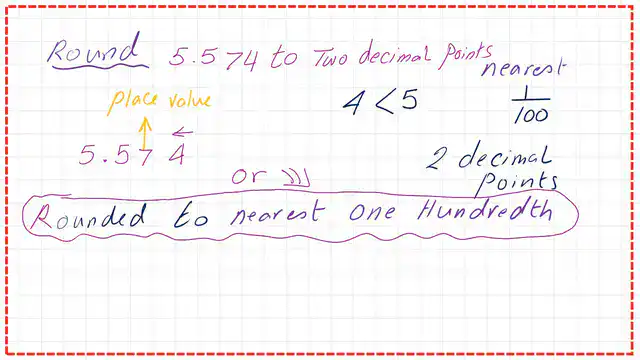 Round 5.574 to Two decimal points
nearest
1/100
place value
4 < 5
5.57 4
2 decimal
points
or
Rounded to nearest one Hundredth